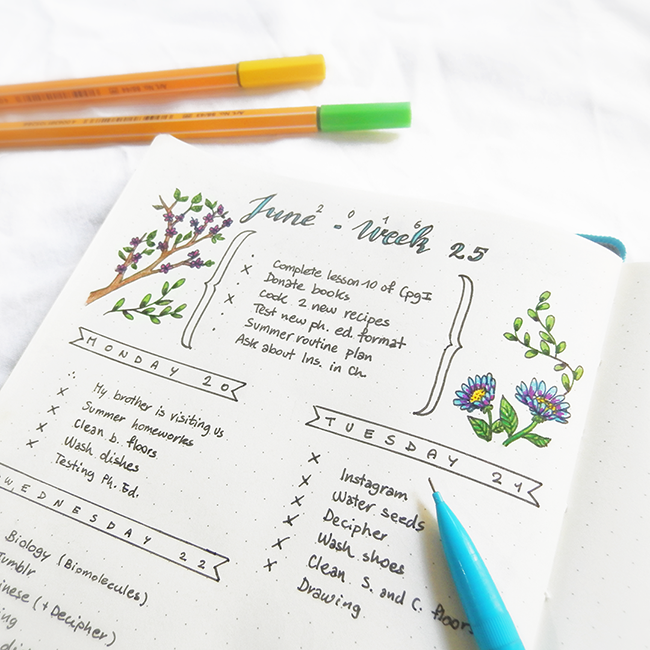 2016
June - Week 25
· Complete lesson 10 of Cpg I
x Donate books
· Cook 2 new recipes
x Test new ph. ed. format
· Summer routine plan
· Ask about Ins. in Ch
MONDAY 20
· My brother is visiting us
x Summer homeworks
x Clean b. floors
x Wash dishes
x Testing Ph. Ed.
TUESDAY 21
x Instagram
x Water seeds
x Decipher
x Wash shoes
x Clean S. and C. floors
x Drawing
WEDNESDAY 22
Biology (Biomolecules)
Tumblr
(+ Decipher)